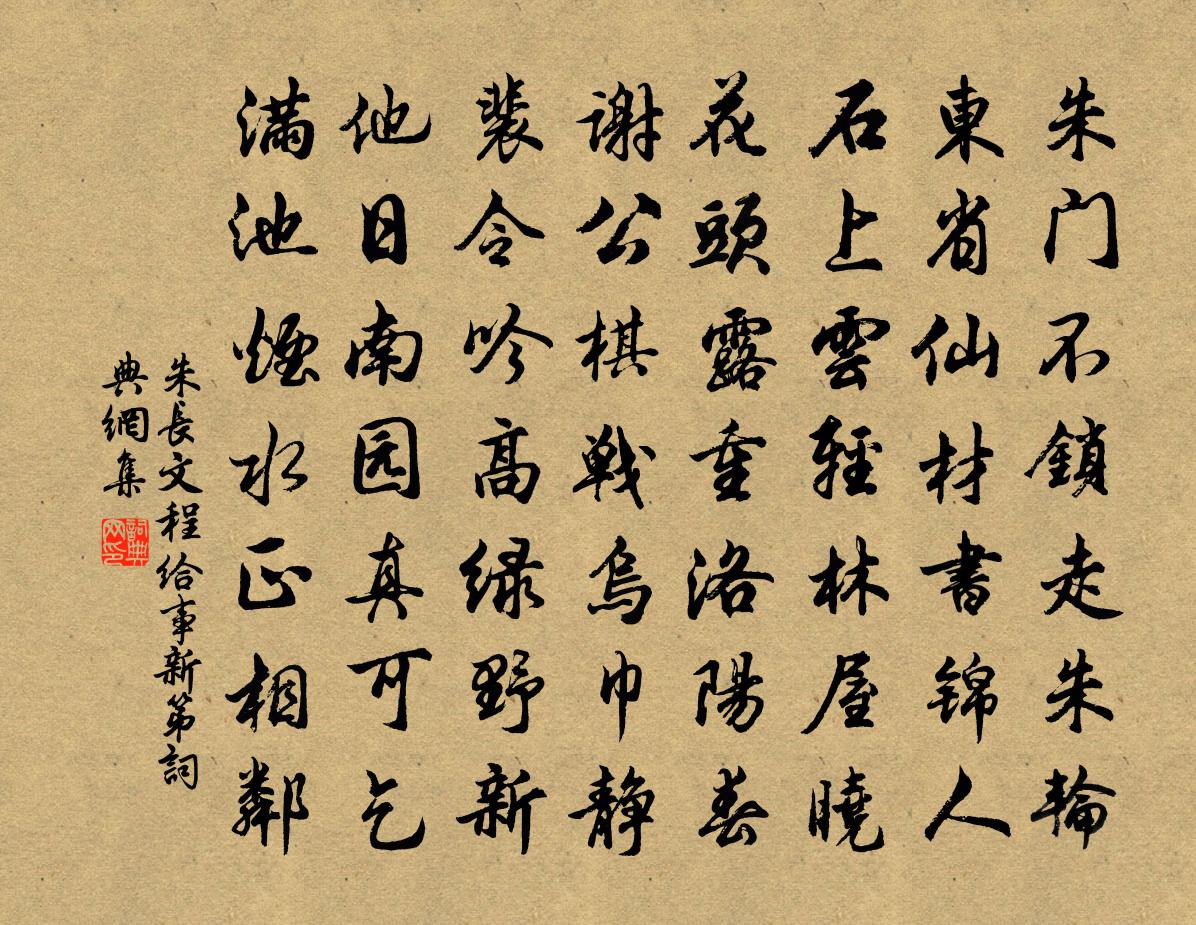 朱门不鎖走朱輪
東省仙材書錦人
石上雲輕林屋曉
花頭露重洛陽春
謝公棋戦烏巾静
裴令吟高绿野新
他日南园真可乞
满池煙水正相鄰
朱長文程給事新第詞
典網集
詞典网印